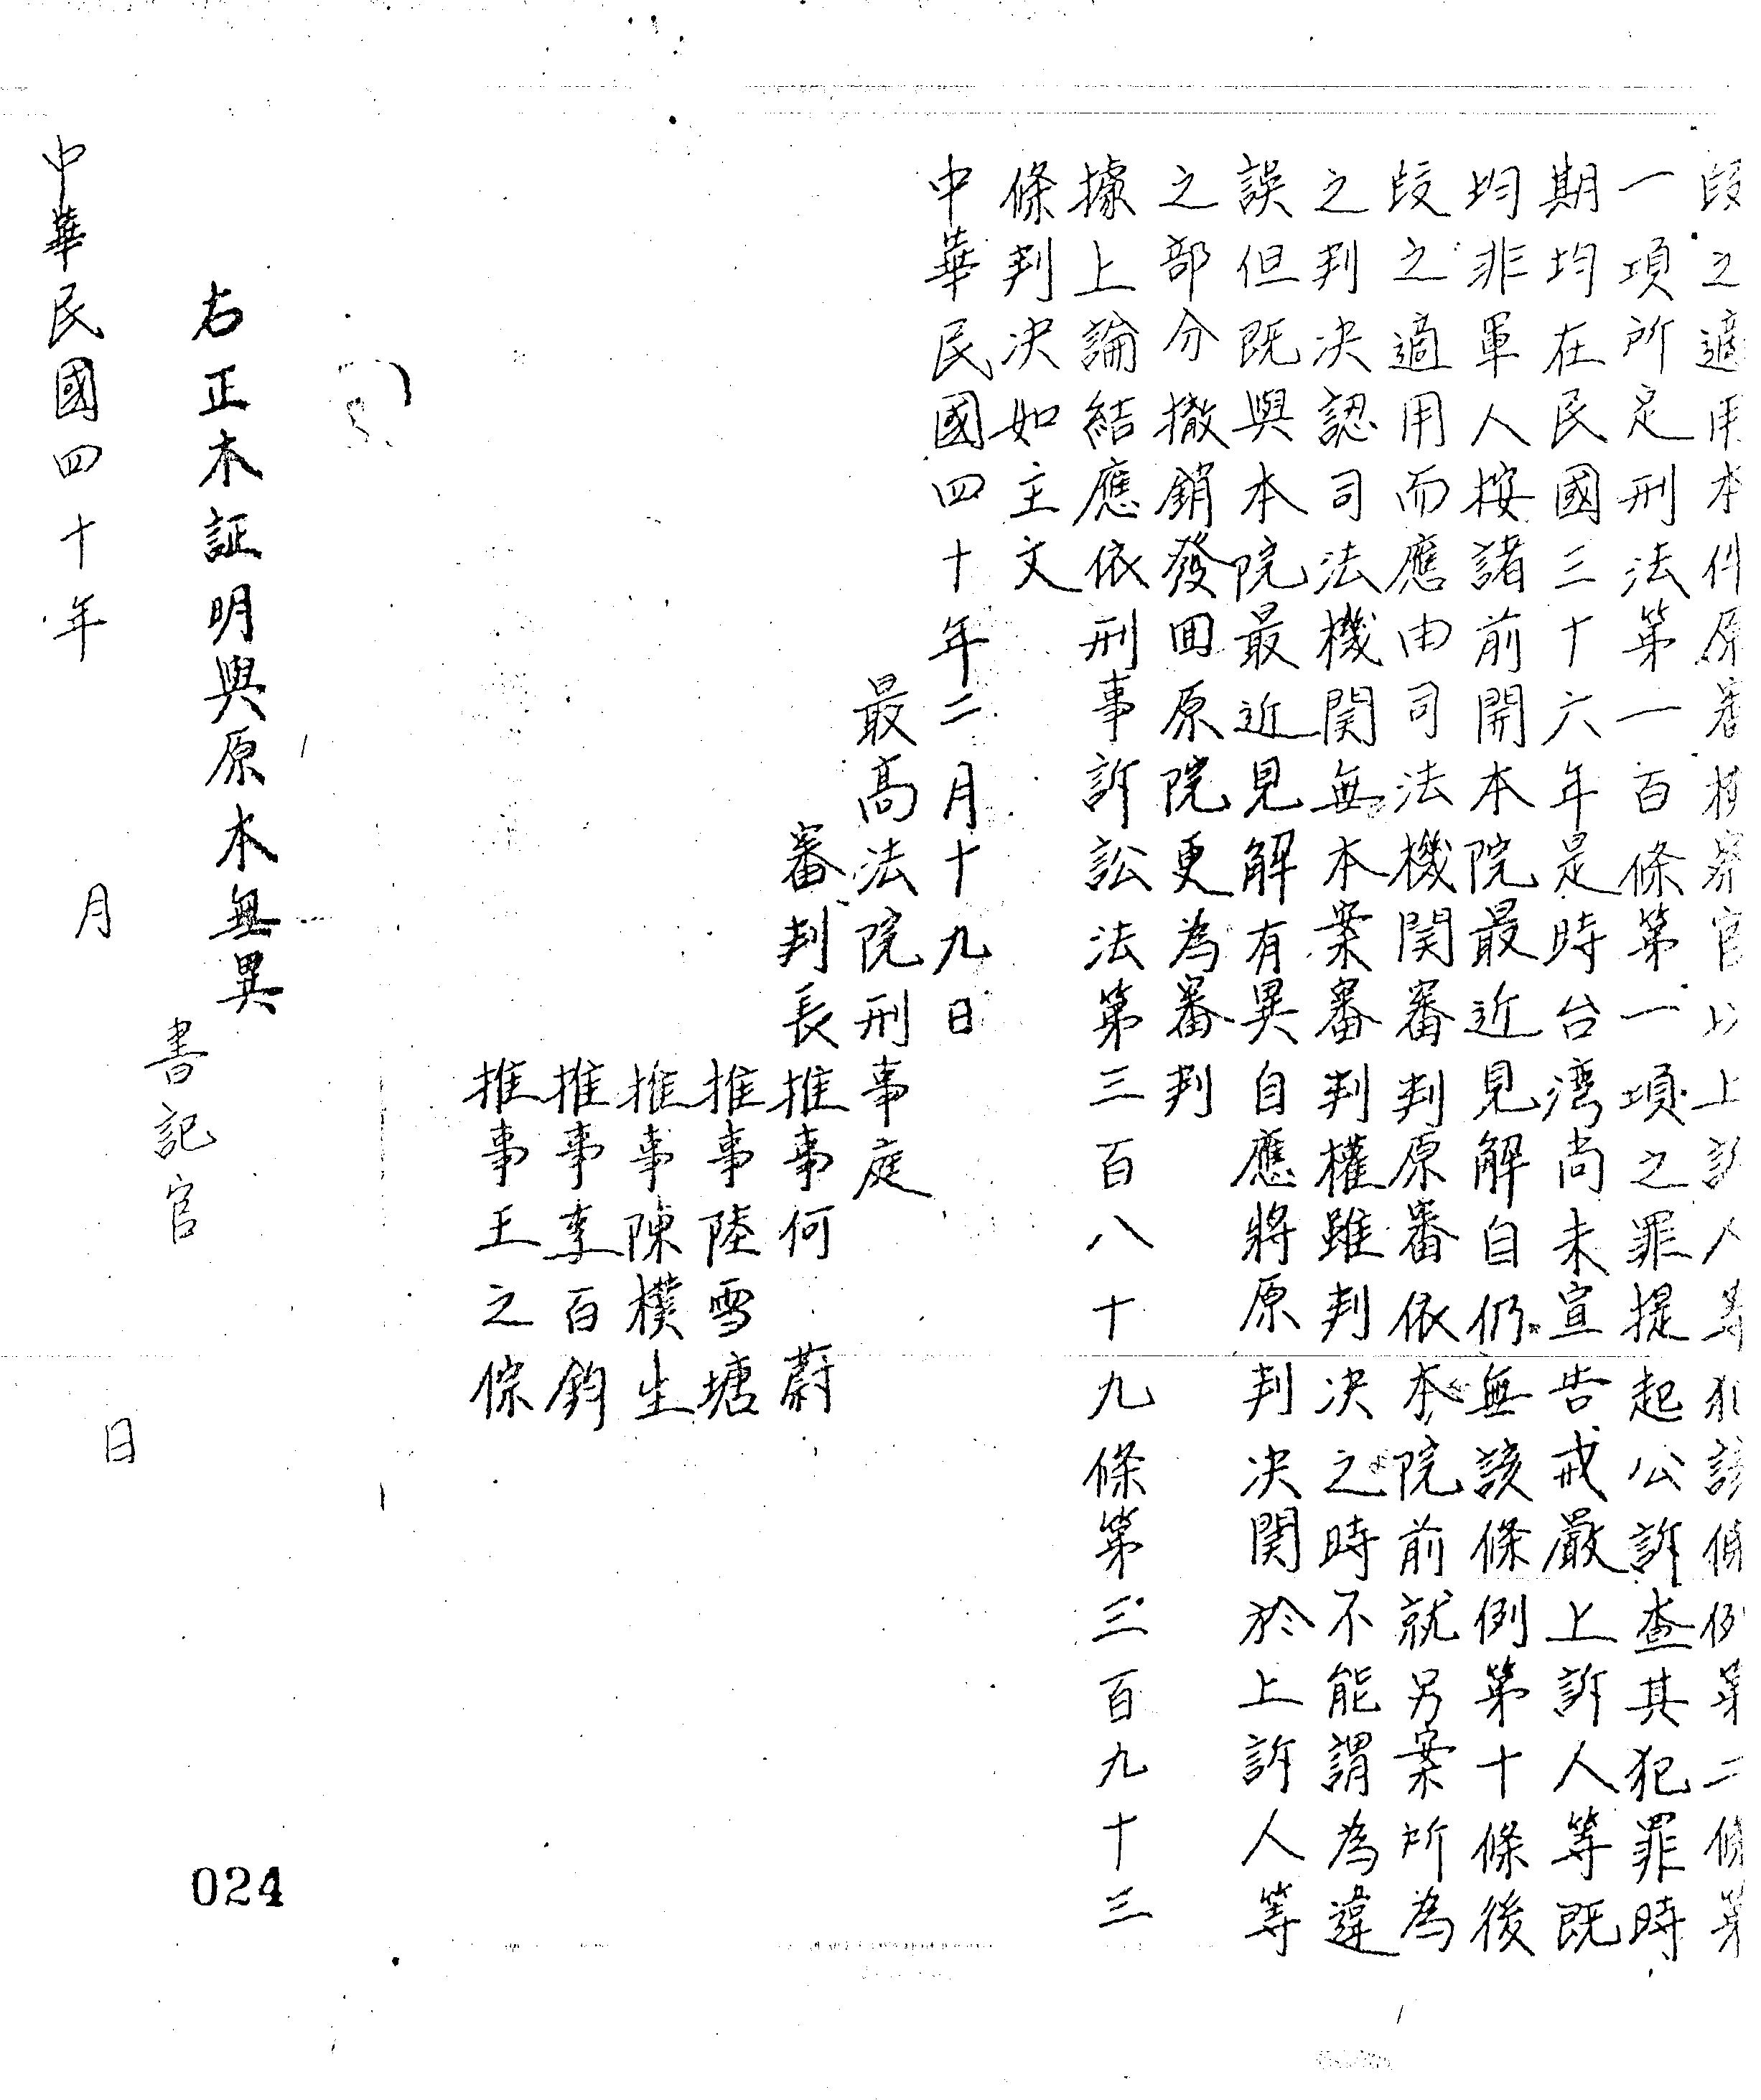 段之適用本件原審檢察官以上訴人等犯該條例第二條第
一項所定刑法第一百條第一項之罪提起公訴查其犯罪時
期均在民國三十六年是時台湾尚未宣告戒嚴上訴人等既
均非軍人按諸前開本院最近見解自仍無該條例第十條後
段之適用而應由司法機関審判原審依本院前就另案所為
之判决認司法機関無本案審判權雖判决之時不能謂為違
誤但既與本院最近見解有異自應將原判决関於上訴人等
之部分撤銷發回原院更為審判
據上論結應依刑事訴訟法第三百八十九條第三百九十三
條判决如主文
中華民國四十年二月十九日
最高法院刑事庭
審判長推事何蔚
推事陸雪塘
推事陳樸生
推事李百鈞
推事王之倧
右正本証明與原本無異
書記官
中華民國四十年 月 日
024